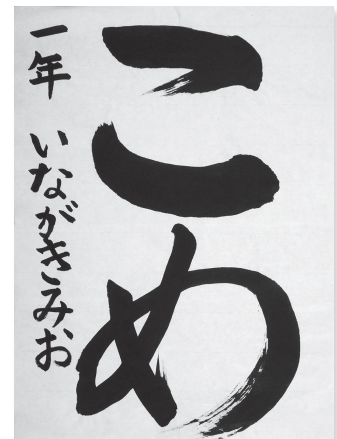 こめ
一年 いながきみお